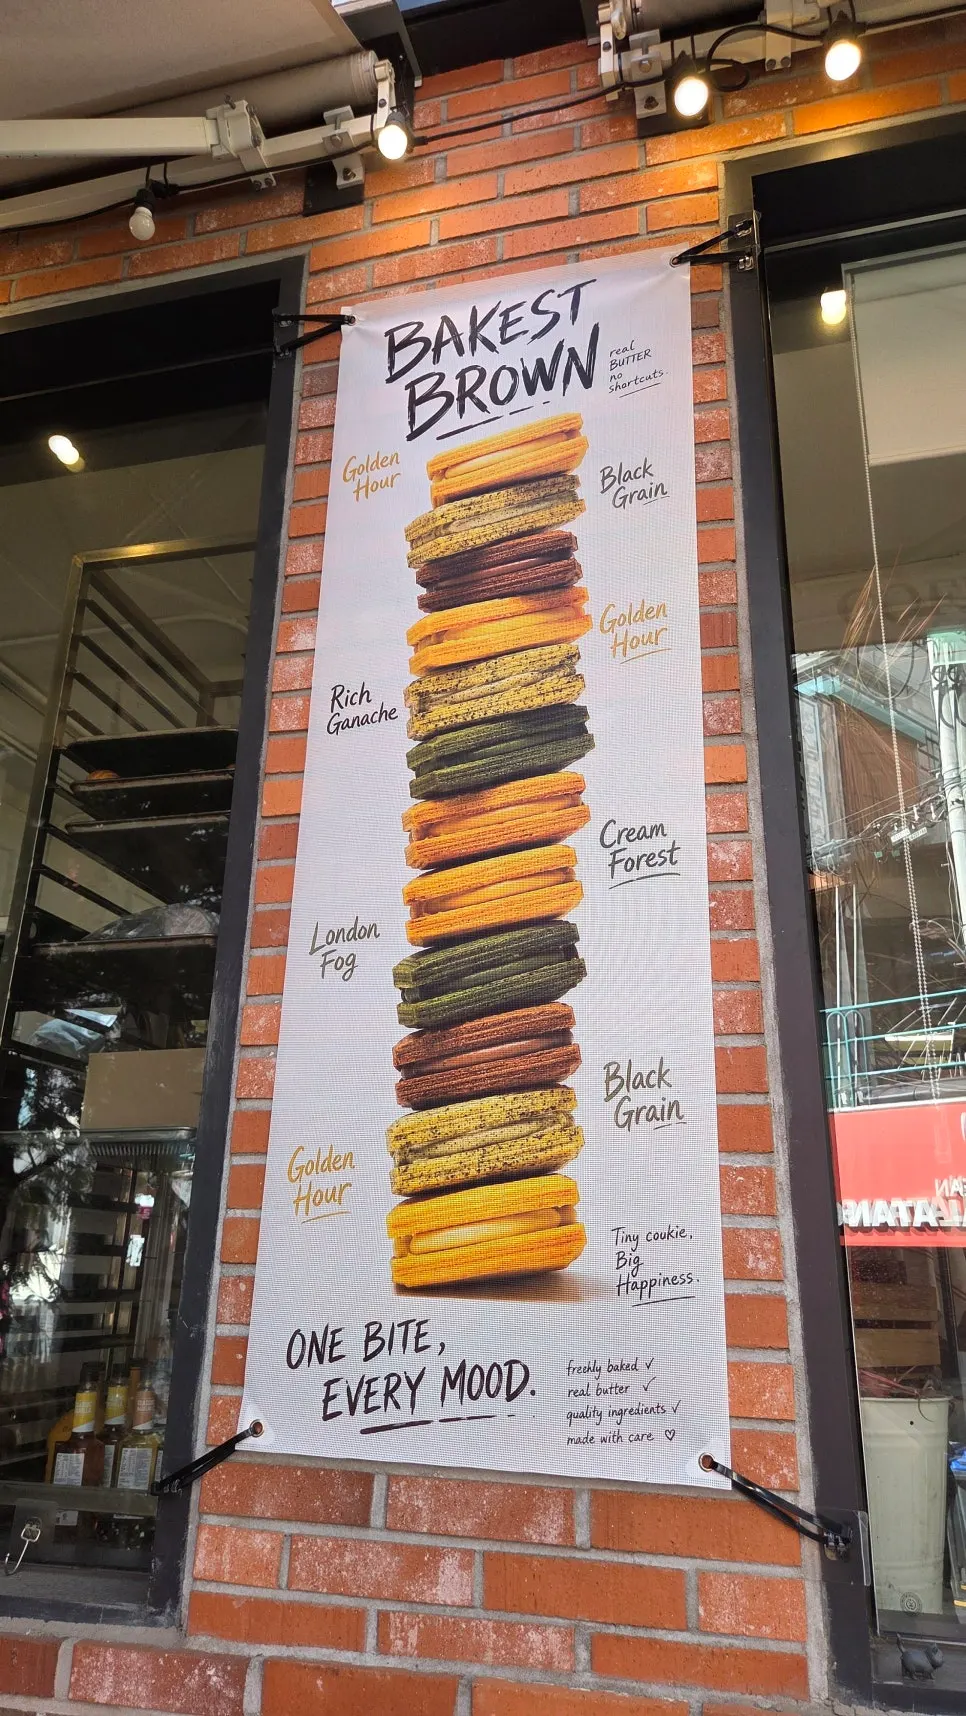 BAKEST
BROWN
real
BUTTER
no
shortcuts.
Golden
Hour
Black
Grain
Golden
Hour
Rich
Ganache
Cream
Forest
London
Fog
Black
Grain
Golden
Hour
Tiny coukie,
Big
Happiness.
ONE BITE,
EVERY MOOD.
freehly baked ✓
real butter ✓
quality ingredients ✓
made with care ♡